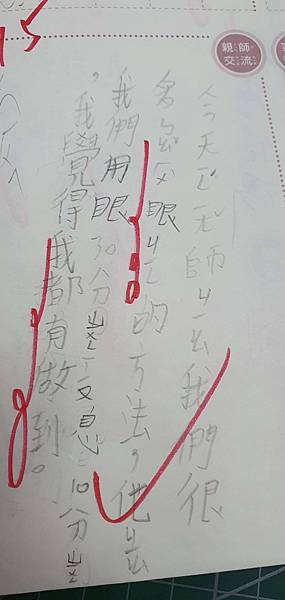 親師
交流
今天老師ㄐㄧㄠ我們很
多眼ㄐㄧㄥ的方法，他ㄐㄧㄠ
我們用眼30分ㄓㄨㄥ息10分ㄓㄨㄥ
，我覺得我都有做到。
15